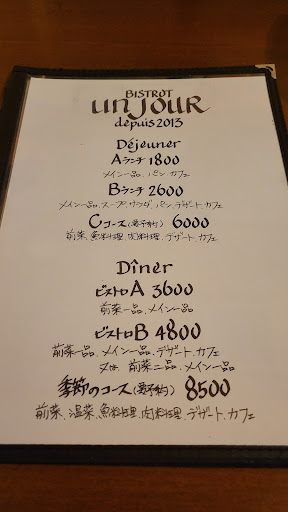 BISTROT
un JOUR
depuis 2013
Déjeuner
Aランチ 1800
メイン一品、パン、カフェ
Bランチ 2600
メイン一品、スープ、サラダ、パン、デザート、カフェ
Cコース(要予約) 6000
前菜、魚料理、肉料理、デザート、カフェ
Dîner
ビストロA 3600
前菜一品、メイン一品
ビストロB 4800
前菜一品、メイン一品、デザート、カフェ
又は、前菜二品、メイン一品
季節のコース(要予約) 8500
前菜、温菜、魚料理、肉料理、デザート、カフェ